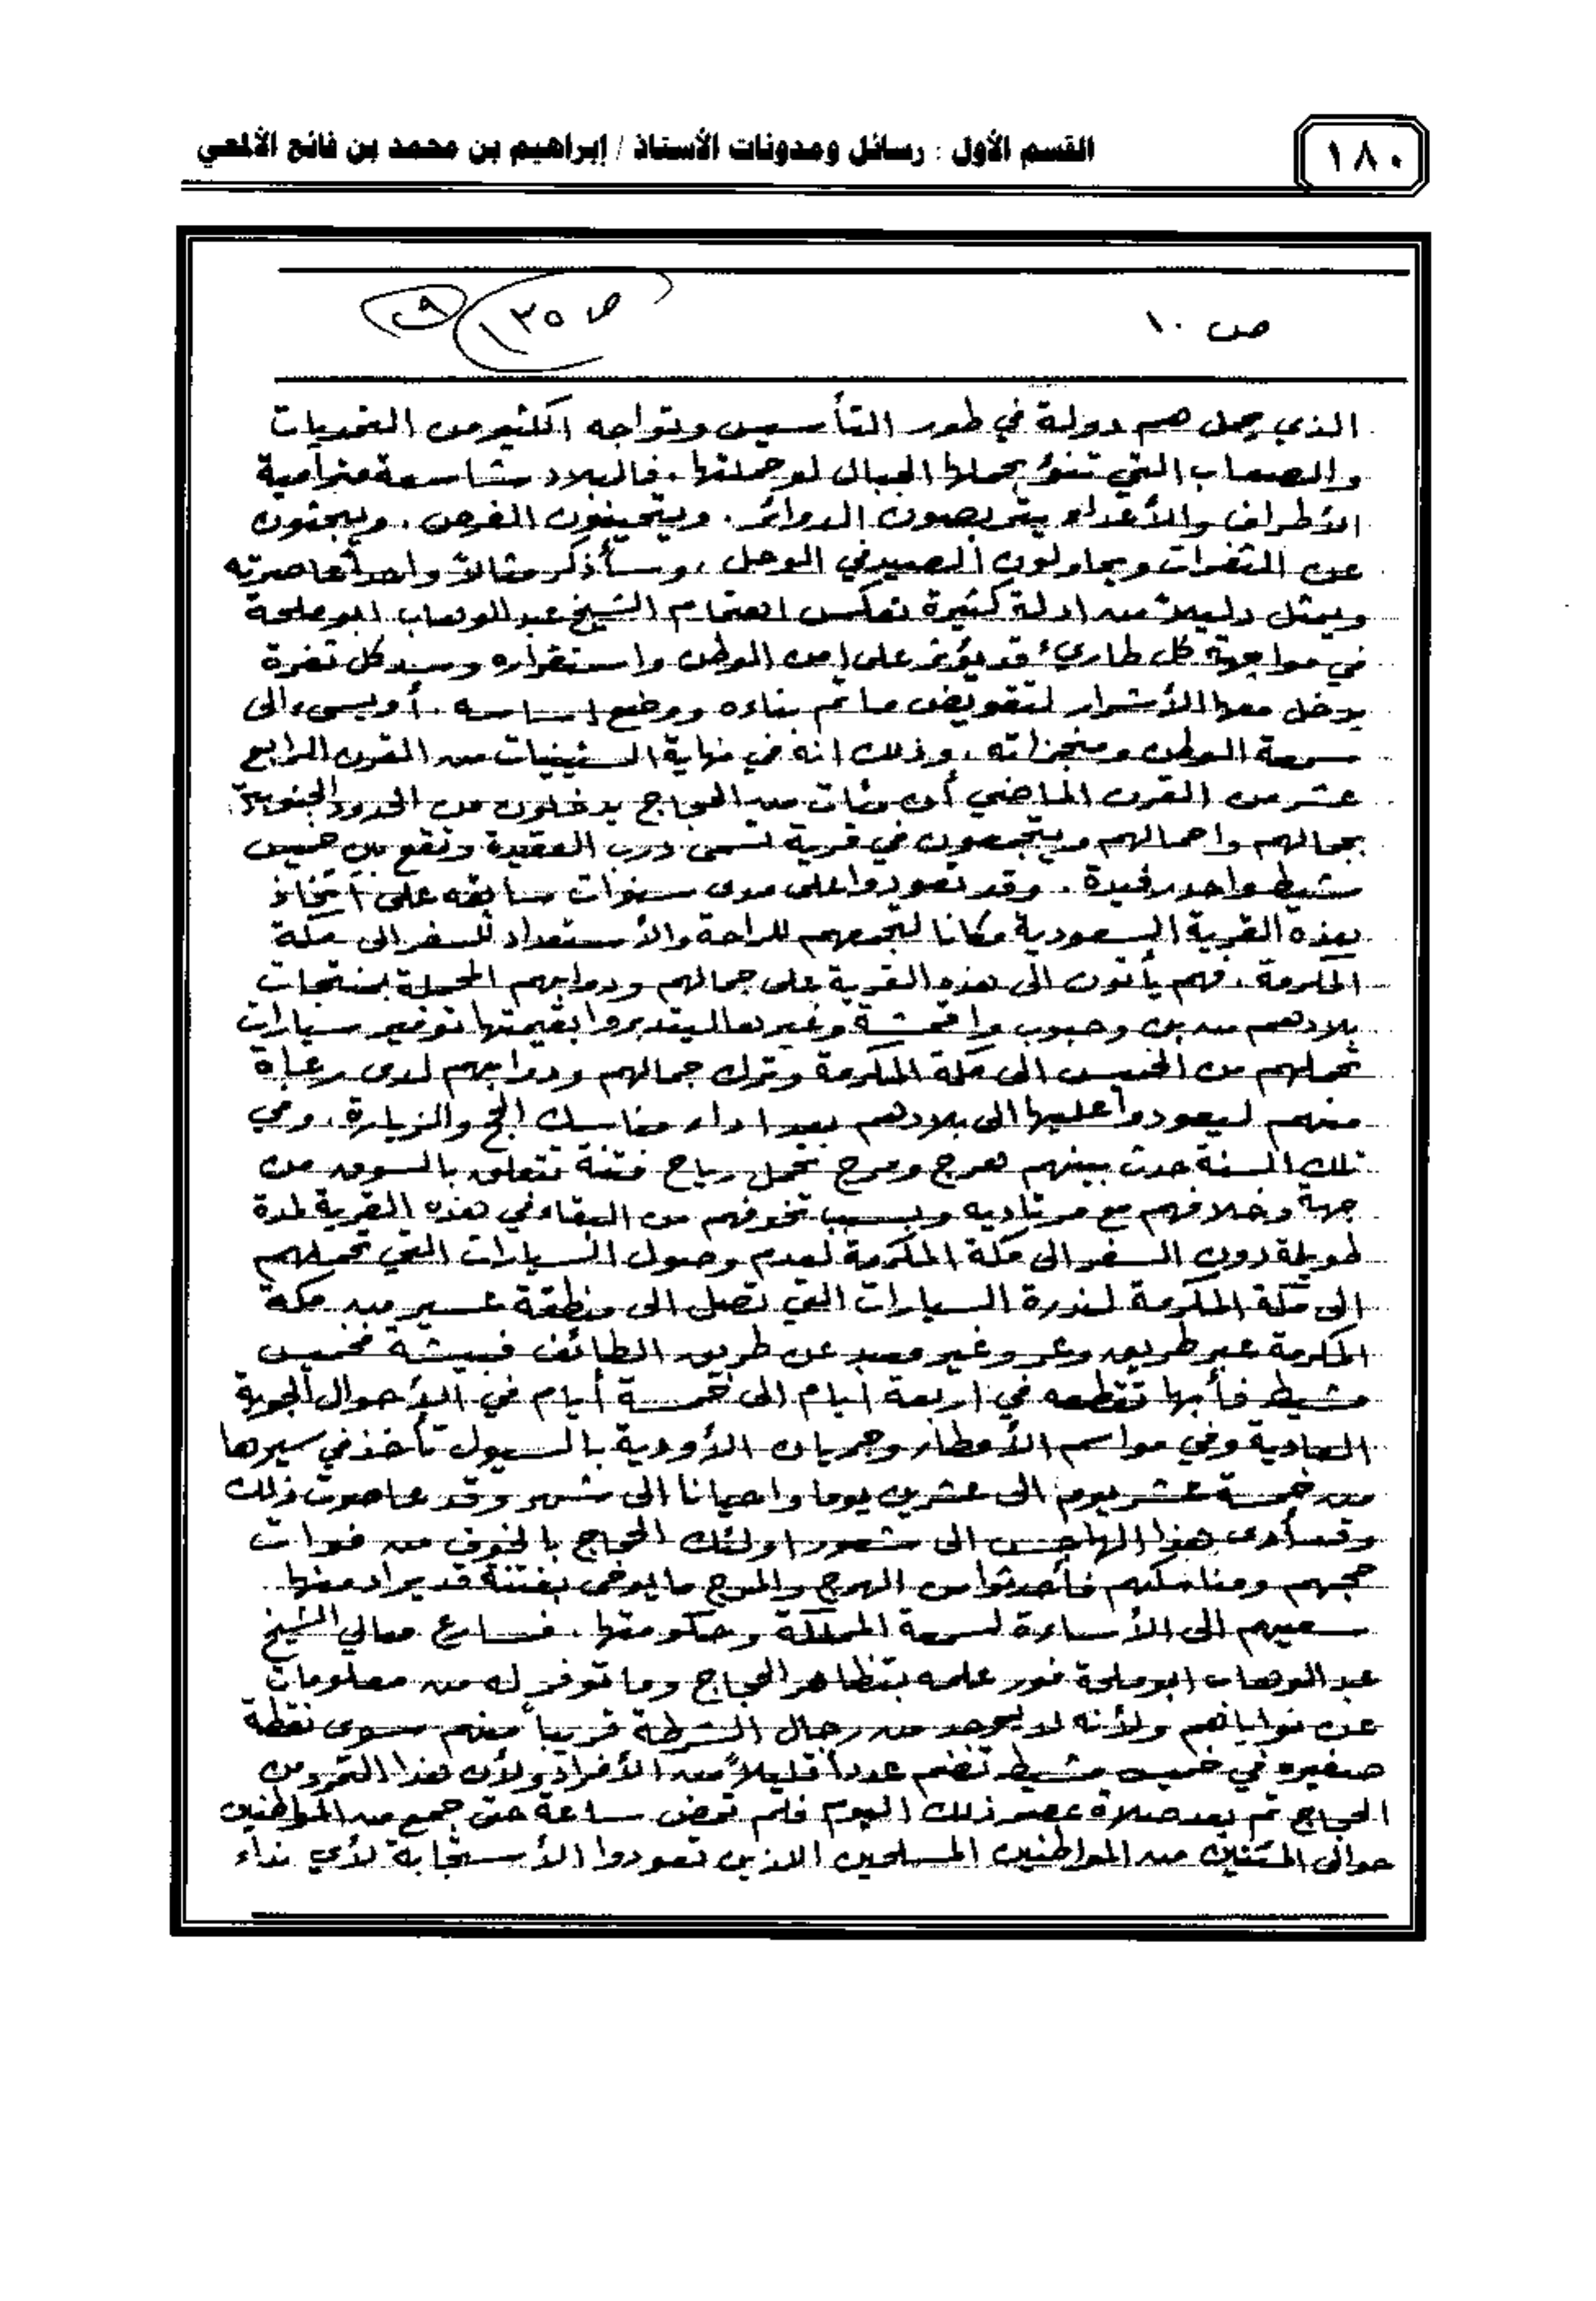 ١٨٠
القسم الأول : رسائل ومدونات الأستاذ / إبراهيم بن محمد بن فائع الألمعي
ص ١٠
ص ١٣٥
الذي يحمل هم دولة في طور التأسيس وتواجه الكثير من التحديات
والصعاب التي تنوء بحملها الجبال لو حملتها . فالبلاد شاسعة مترامية
الأطراف والأعداء يتربصون الدوائر . ويتحينون الفرص . ويبحثون
عن الثغرات ويحاولون الصيد في الوحل . وسأذكر مثالاً واحداً عاصرته
ويمثل دليلاً من ادلة كثيرة تعكس اهتمام الشيخ عبدالوهاب ابو ملحة
في مواجهة كل طاريء قد يؤثر على امن الوطن واستقراره وسد كل ثغرة
يدخل معها الأشرار لتقويض ما تم بناءه ووضع اساسه . أو يسيء الى
سمعة الوطن ومنجزاته . وذلك انه في نهاية الستينيات من القرن الرابع
عشر من القرن الماضي أن مئات من الحجاج يدخلون من الحدود الجنوبية
بجمالهم واحمالهم ويتجمعون في قرية تسمى درب العقيدة وتقع بين خميس
مشيط واحد رفيدة . وقد تعودوا على مدى سنوات سابقه على اتخاذ
هذه القرية السعودية مكانا لتجمعهم للراحة والأستعداد للسفر الى مكة
المكرمة . فهم يأتون الى هذه القرية على جمالهم ودوابهم المحملة بمنتجات
بلادهم من بن وحبوب واقمشة وغيرها ليتدبروا بقيمتها توفير سيارات
تحملهم من الخميس الى مكة المكرمة وترك جمالهم ودوابهم لدى رعاة
منهم ليعودوا عليها الى بلادهم بعد اداء مناسك الحج والزيارة . وفي
تلك السنة حدث بينهم هرج ومرج تحمل رياح فتنة تتعلق بالسوق من
جهة وخلافهم مع مرتاديه وبسبب تخوفهم من البقاء في هذه القرية لمدة
طويلة دون السفر الى مكة المكرمة لعدم وصول السيارات التي تحملهم
الى مكة المكرمة لندرة السيارات التي تصل الى منطقة عسير من مكة
المكرمة عبر طريق وعر وغير معبد عن طريق الطائف فبيشة فخميس
مشيط فأبها تقطعه في اربعة أيام الى خمسة أيام في الأحوال الجوية
العادية وفي مواسم الأمطار وجريان الأودية بالسيول تأخذ في سيرها
من خمسة عشر يوم الى عشرين يوما واحيانا الى شهر وقد عاصرت ذلك
وقد أدى هذا الهاجس الى شعور اولئك الحجاج بالخوف من فوات
حجهم ومناسكهم فأحدثوا من الهرج والمرج ما يوحى بفتنة قد يراد منها
سعيهم الى الأساءة لسمعة المملكة وحكومتها . فسارع معالي الشيخ
عبدالوهاب ابو ملحة فور علمه بتظاهر الحجاج وما توفر له من معلومات
عن نواياهم ولأنه لا يوجد من رجال الشرطة قريباً منهم سوى نقطة
صغيره في خميس مشيط تضم عدداً قليلاً من الأفراد ولأن هذا التمرد من
الحجاج تم بعد صلاة عصر ذلك اليوم فلم تمض ساعة حتى جمع من المواطنين
حوالى المئتين من المواطنين المسلحين الذين تعودوا الأستجابة لأي نداء